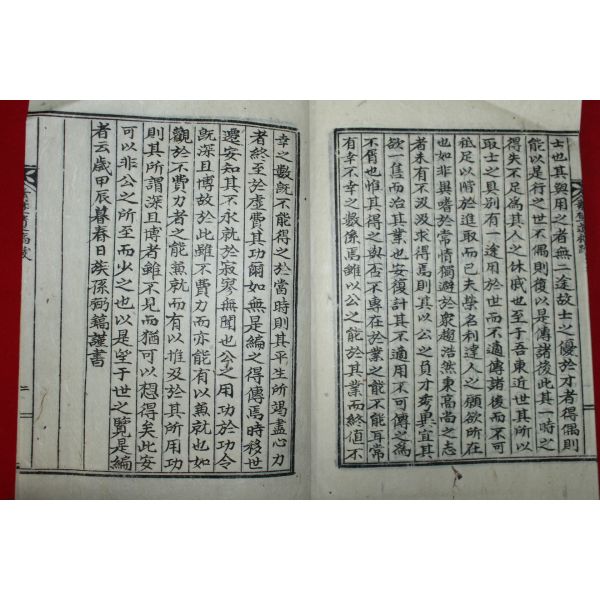 士也其與用之者無二途故士之優於才者得偶則
能以是行之世不偶則復以是傳諸後此其一時之
得失不足爲其人之休戚也至于吾東近世其所以
取士之具別有一途用於世而不適傳諸後而不可
秪足以階於進取而已夫學名利達人之願欲所在
也如非異嗜於常情獨避於衆趨浩然東高尚之志
者未有不汲汲求得焉則其以公之負才夸異宜其
欲一售而治其業也安復計其不適用不可傳之爲
不屑也惟其得之與否不專在於業之能不能耳常
有幸不幸之數係焉雖以公之能於其業而終値不
幸之數旣不能得之於當時則其平生所竭盡心力
者終至於虛費其功爾如無是編之得傳焉時移世
遷安知其不永就於寂寥無聞也公之用功於功令
旣深且博故於此雖不費力而亦能有以兼就也如
觀於不費力者之能兼就而有以推及於其所用功
則其所謂深且博者雖不見而猶可以想得矣此安
可以非公之所至而少之也以是望于世之覽是編
者云歲甲辰暮春日族孫弼鎬謹書
二